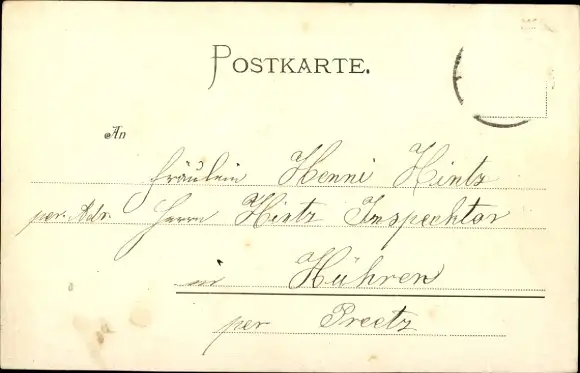 POSTKARTE.
An
Fräulein Henni Hintz
per. Adr. Herrn Hintz Inspecktor
in Hühren
per Preetz